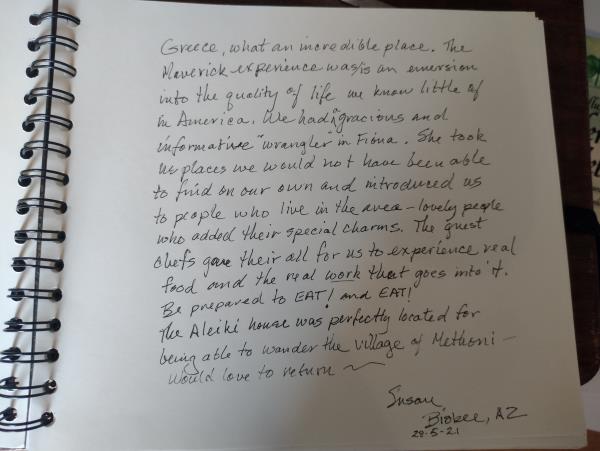 Greece, what an incredible place. The
Maverick experience was/is an emersion
into the quality of life we know little of
in America. We had a gracious and
informative "wrangler" in Fiona. She took
us places we would not have been able
to find on our own and introduced us
to people who live in the area - lovely people
who added their special charms. The guest
chefs gave their all for us to experience real
food and the real work that goes into it.
Be prepared to EAT! and EAT!
The Aleiki house was perfectly located for
being able to wander the village of Methoni -
would love to return ~
Susan
Bisbee, AZ
29-5-21